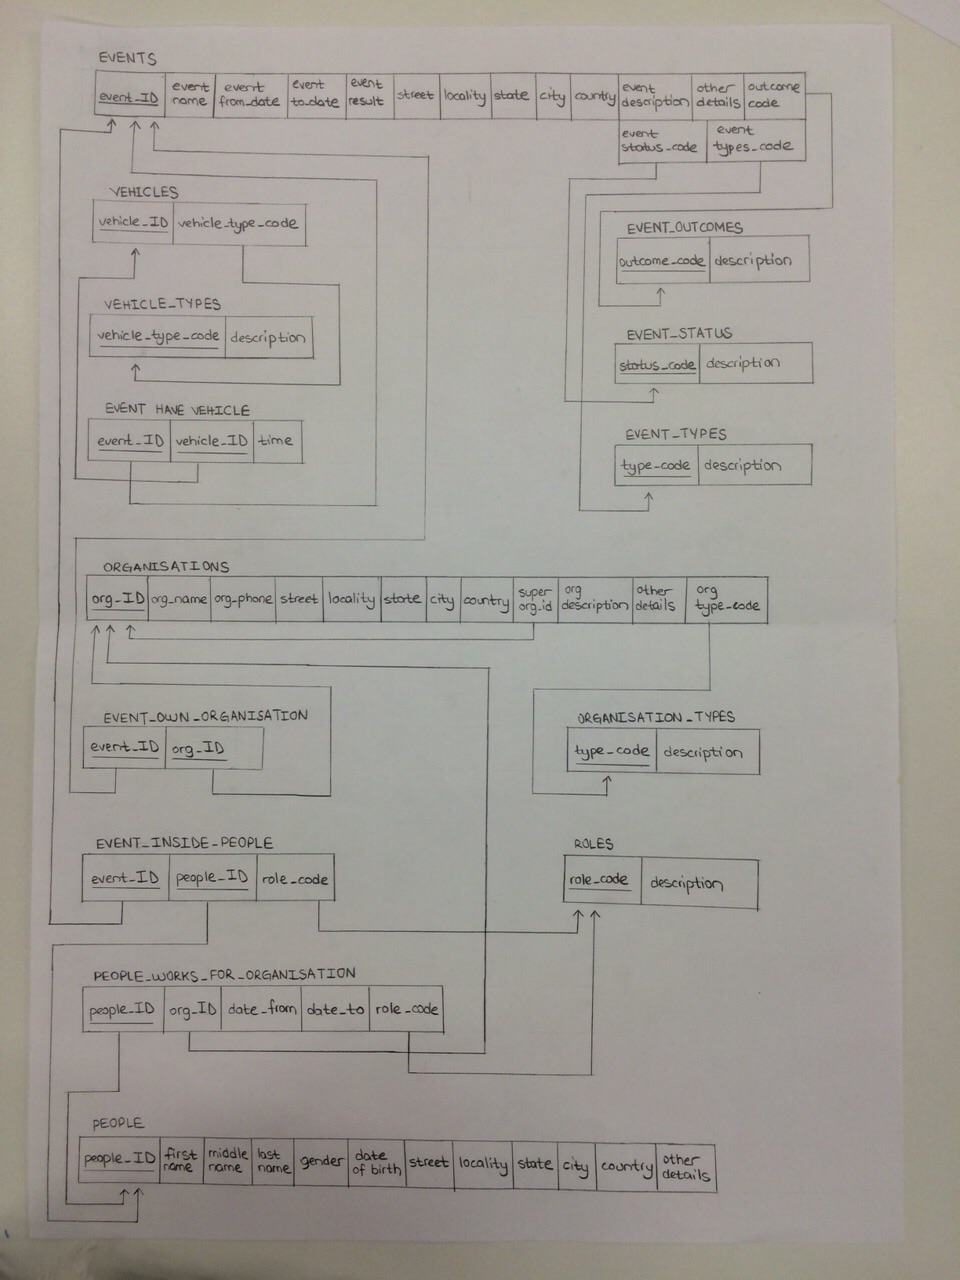 EVENTS
event_ID event name event from_date event to_date event result street locality state city country event description other details outcome code
event status_code event types_code
VEHICLES
vehicle_ID vehicle_type_code
EVENT_OUTCOMES
outcome_code description
VEHICLE_TYPES
vehicle_type_code description
EVENT_STATUS
status_code description
EVENT HAVE VEHICLE
event_ID vehicle_ID time
EVENT_TYPES
type_code description
ORGANISATIONS
org_ID org_name org_phone street locality state city country super org_id org description other details org type_code
EVENT_OWN_ORGANISATION
event_ID org_ID
ORGANISATION_TYPES
type_code description
EVENT_INSIDE_PEOPLE
event_ID people_ID role_code
ROLES
role_code description
PEOPLE_WORKS_FOR_ORGANISATION
people_ID org_ID date_from date_to role_code
PEOPLE
people_ID first name middle name last name gender date of birth street locality state city country other details